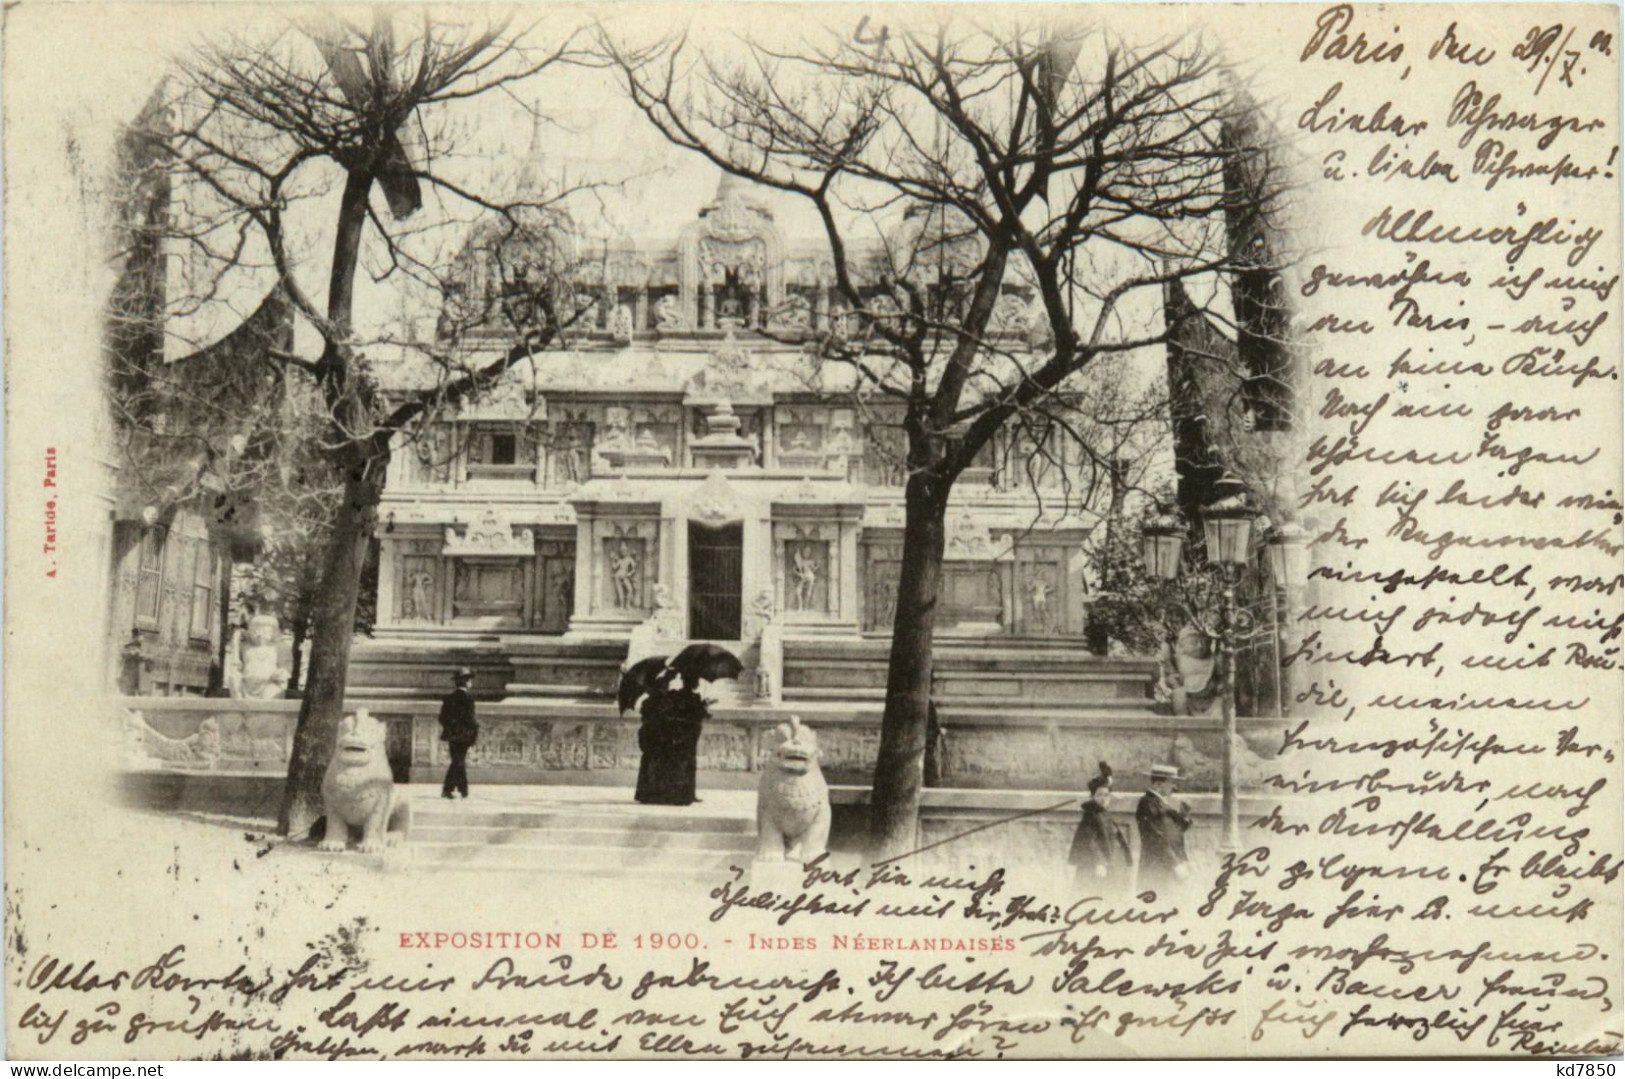 4
Paris, den 29./7. 00.
Lieber Schwager
u. liebe Schwester!
Allmählig
gewöhne ich mich
an Paris, – auch
an seine Küche.
Nach ein paar
schönen Tagen
hat sich leider wie-
der Regenwetter
eingestellt, was
mich jedoch nicht
hindert, mit
meinem
französischen Ver-
einsbruder, nach
der Ausstellung
zu pilgern. Er bleibt
nur 8 Tage hier u. muß
daher die Zeit wahrnehmen.
Hat sie nicht
Ähnlichkeit mit Dir,
A. Taride, Paris
EXPOSITION DE 1900. - INDES NÉERLANDAISES
Ottos Karte hat mir Freude gebracht. Ich bitte Salewski u. Bauer freund-
lich zu grüßen. Laßt einmal von Euch etwas hören. Es grüßt Euch herzlich Euer
Gretchen, warst Du mit Ellen zusammen?
kd7850